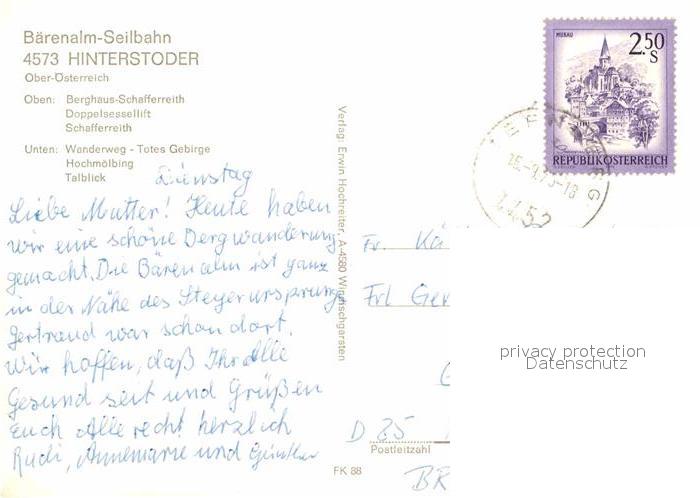 Bärenalm-Seilbahn
4573 HINTERSTODER
Ober-Österreich
Oben: Berghaus-Schafferreith
Doppelsessellift
Schafferreith
Unten: Wanderweg - Totes Gebirge
Hochmölbing
Talblick
Dienstag
Liebe Mutter! Heute haben
wir eine schöne Bergwanderung
gemacht. Die Bärenalm ist ganz
in der Nähe des Steyerursprung
Gertraud war schon dort.
Wir hoffen, daß Ihr Alle
Gesund seit und Grüßen
Euch Alle recht herzlich
Rudi, Annemarie und Günther
Verlag: Erwin Hochreiter, A-4580 Windischgarsten
MURAU
2.50
S
REPUBLIK ÖSTERREICH
4452
Fr. Kä
Frl Ger
G
D 85
Postleitzahl
BR
FK 88
privacy protection
Datenschutz